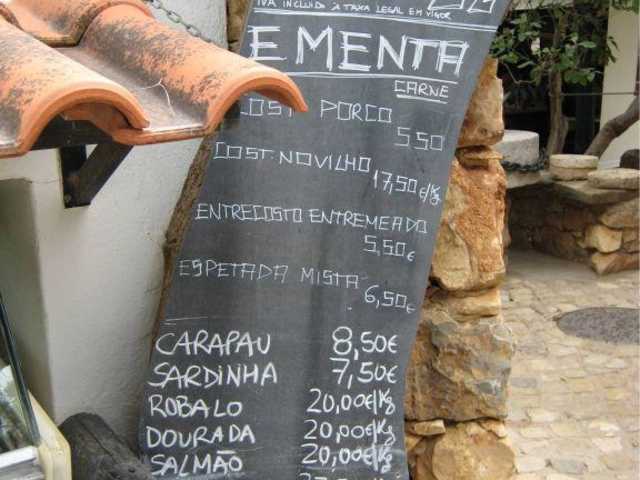 IVA INCLUIDO À TAXA LEGAL EM VIGOR
EMENTA
CARNE
COST. PORCO
5.50
COST. NOVILHO
17,50€/Kg
ENTRECOSTO ENTREMEADO
5,50€
ESPETADA MISTA
6,50€
CARAPAU 8,50€
SARDINHA 7,50€
ROBALO 20,00€/Kg
DOURADA 20,00€/Kg
SALMÃO 20,00€/Kg